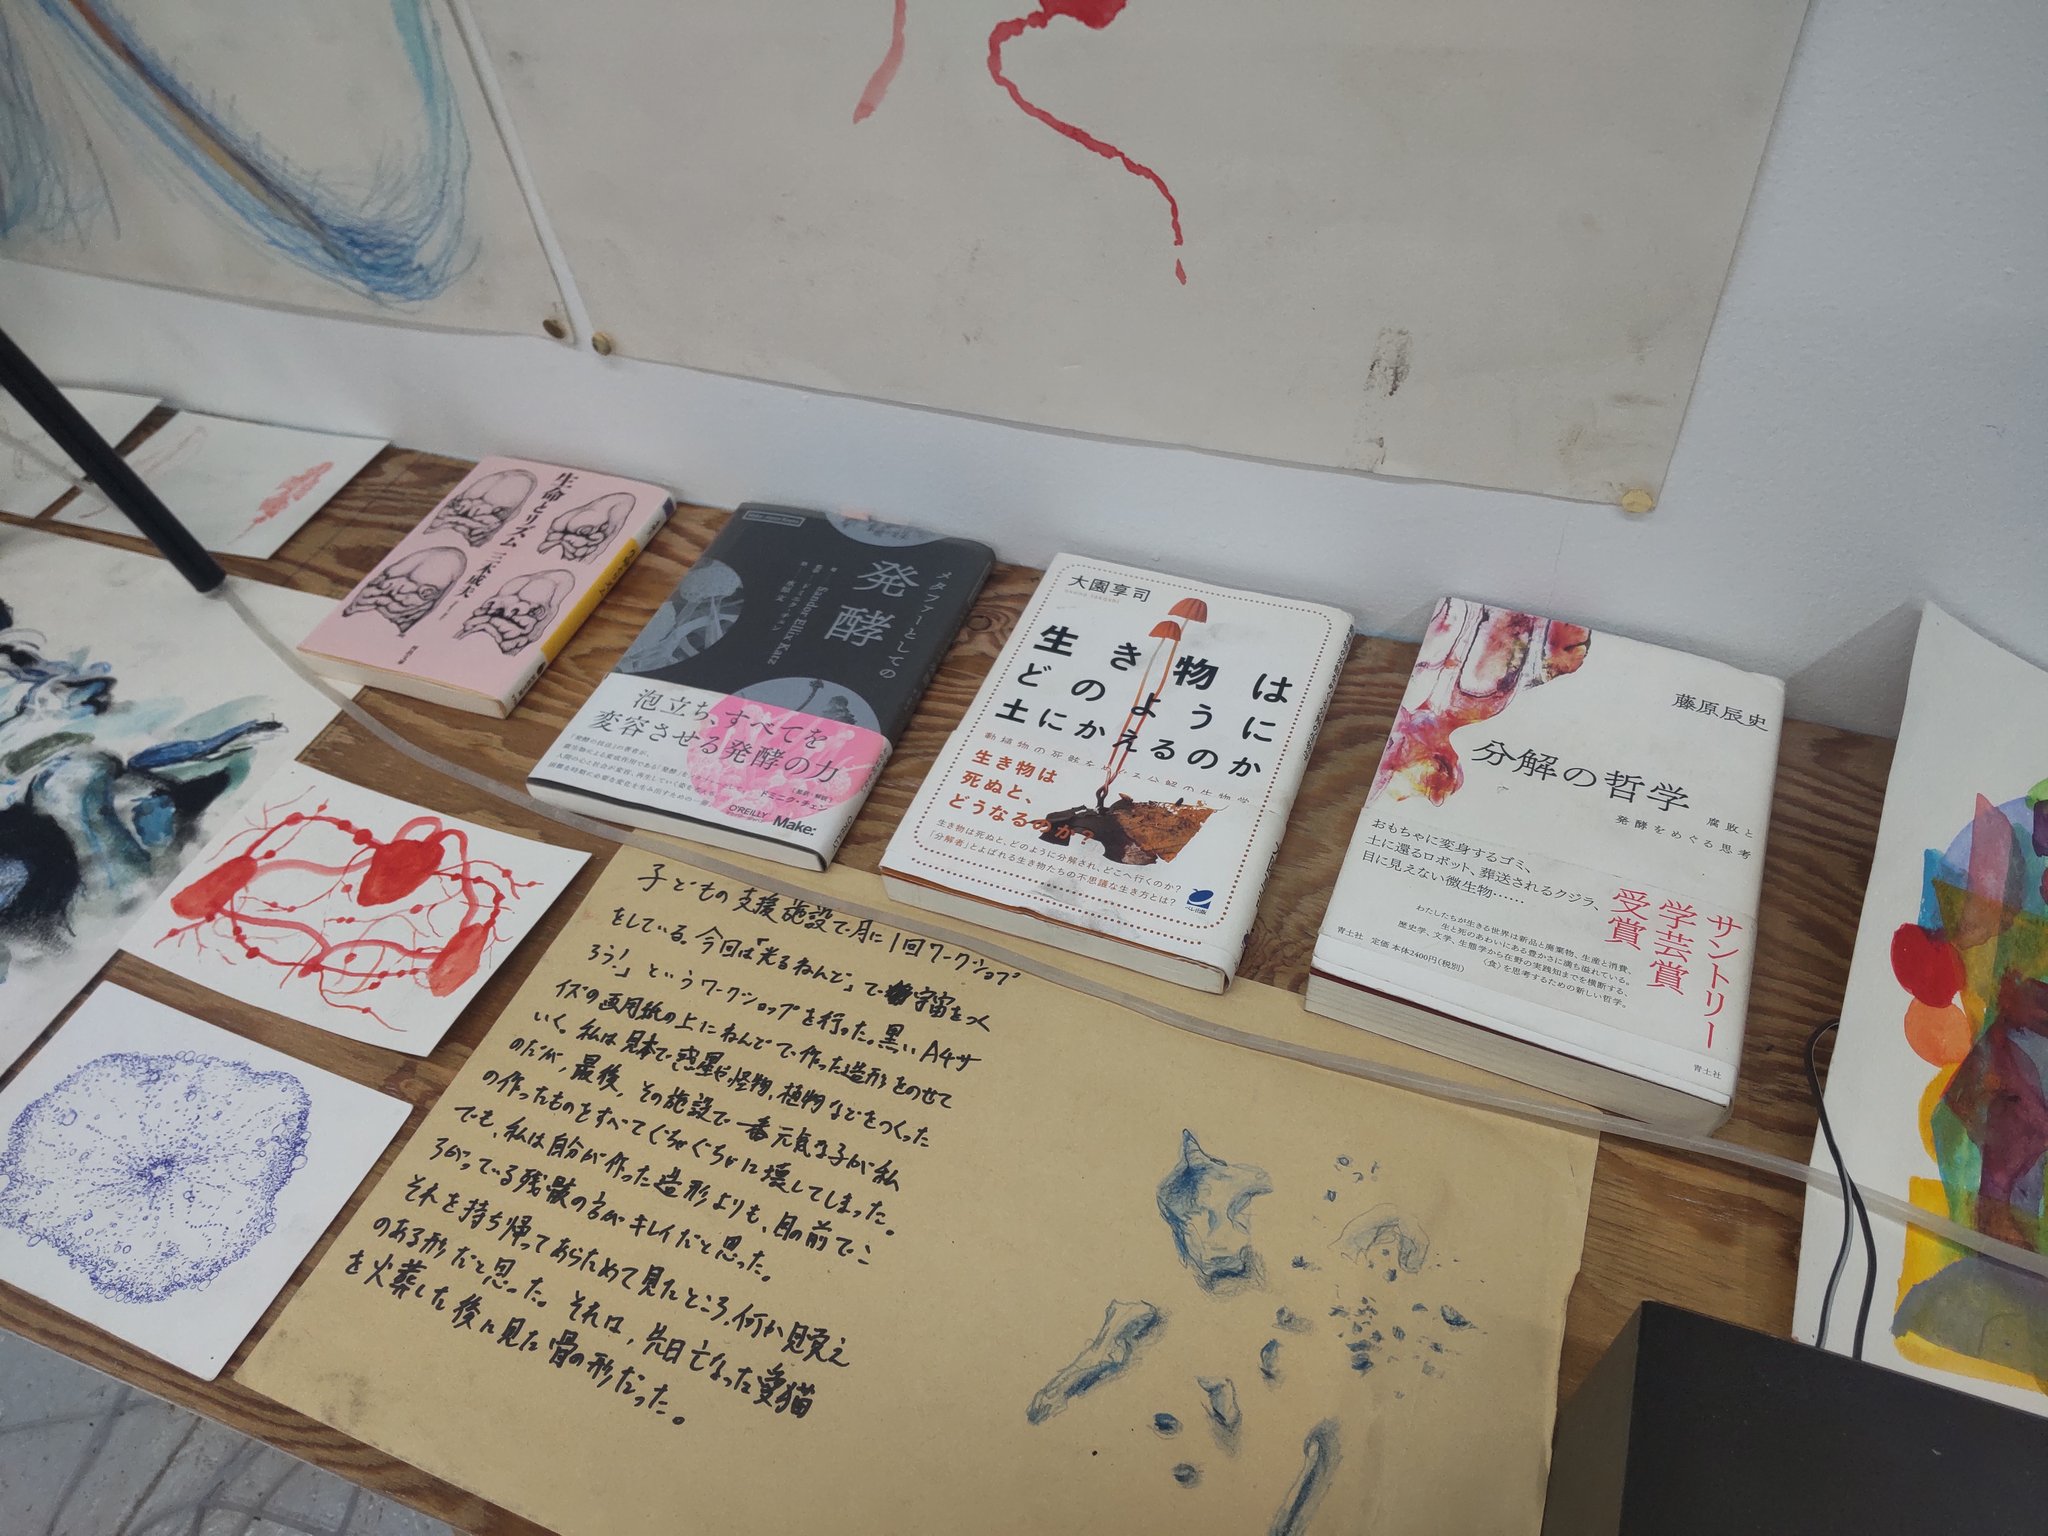 生命とリズム
三木成夫
メタファーとしての
発酵
Sandor Ellix Katz
ドミニク・チェン
泡立ち、すべてを
変容させる発酵の力
ドミニク・チェン
O'REILLY
Make:
大園享司
生き物は
どのように
土にかえるのか
動植物の死骸をめぐる分解の生物学
生き物は
死ぬと、
どうなるのか?
生き物は死ぬと、どのように分解され、どこへ行くのか?
「分解者」とよばれる生き物たちの不思議な生き方とは?
ベレ出版
藤原辰史
分解の哲学
腐敗と
発酵をめぐる思考
おもちゃに変身するゴミ、
土に還るロボット、葬送されるクジラ、
目に見えない微生物……
サントリー
学芸賞
受賞
わたしたちが生きる世界は新品と廃棄物、生産と消費、
生と死のあわいにある豊かさに満ち溢れている。
歴史学、文学、生態学から在野の実践知までを横断する、
〈食〉を思考するための新しい哲学。
青土社 定価 本体2400円(税別)
青土社
子どもの支援施設で月に1回ワークショップ
をしている。今回は「光るねんど」で宇宙をつく
ろう!」というワークショップを行った。黒いA4サ
イズの画用紙の上にねんどで作った造形をのせて
いく。私は見本で惑星や怪物、植物などをつくった
のだが、最後、その施設で一番元気な子が私
の作ったものをすべてぐちゃぐちゃに壊してしまった。
でも、私は自分が作った造形よりも、目の前でこ
ろがっている残骸の方がキレイだと思った。
それを持ち帰ってあらためて見たところ、何か見覚え
のある形だと思った。それは、先日亡なった愛猫
を火葬した後に見た骨の形だった。